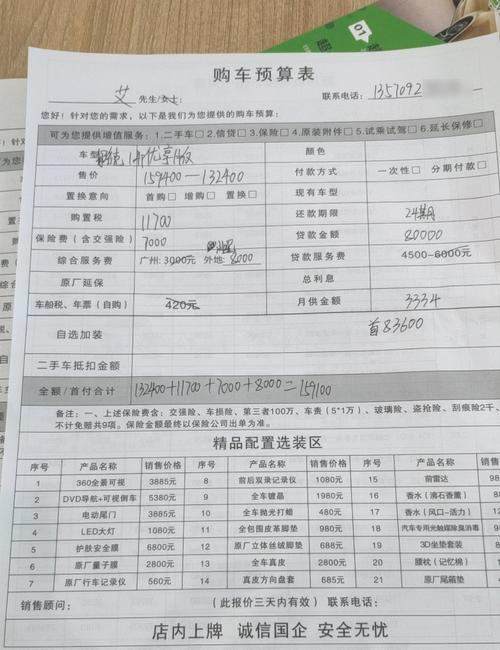 01
购车预算表
艾 先生/女士: 联系电话: 1357092
您好!针对您的需求,以下是我们为您提供的购车预算:
可为您提供增值服务:1.二手车□ 2.信贷□ 3.保险□ 4.原装附件□ 5.试乘试驾□ 6.延长保修□
车型 颜色
售价 159400—132400 付款方式 一次性□ 分期付款□
置换意向 首购□ 增购□ 置换□ 现有车型
购置税 11700 还款期限 24期
保险费(含交强险) 7000 贷款金额 80000
综合服务费 广州: 3000元 外地: 8000 贷款服务费 4500-6000元
原厂延保 总利息
车船税、年票(自购) 420元 月供金额 3334
自选加装 首83600
二手车抵扣金额
全额/首付合计 132400+11700+7000+8000=159100
备注:一、上述保险费含:交强险、车损险、第三者100万、车责(5*1万)、玻璃险、盗抢险、刮痕险2千、
不计免赔共9项。保险金额最终以保险公司出单为准。
精品配置选装区
序号 产品名称 销售价格 序号 产品名称 销售价格 序号 产品名称 销
1 360全景可视 3885元 8 前后双录记录仪 1080元 15 前雷达 98
2 DVD导航+可视倒车 5380元 9 全车镀晶 1980元 16 香水(沸石香薰)
3 电动尾门 3885元 10 全车抛光打蜡 480元 17 香水(风口-活力)
4 LED大灯 1080元 11 全包围皮革脚垫 980元 18 汽车专用光触媒除臭消毒
5 护肤安全膜 6800元 12 原厂立体丝绒脚垫 688元 19 3D坐垫套装
6 原厂量子膜 2800元 13 全车真皮 2800元 20 腰枕(记忆棉)
7 原厂行车记录仪 560元 14 真皮方向盘套 685元 21 原厂尾箱垫
销售顾问: (此报价三天内有效) 联系电话:
店内上牌 诚信国企 安全无忧